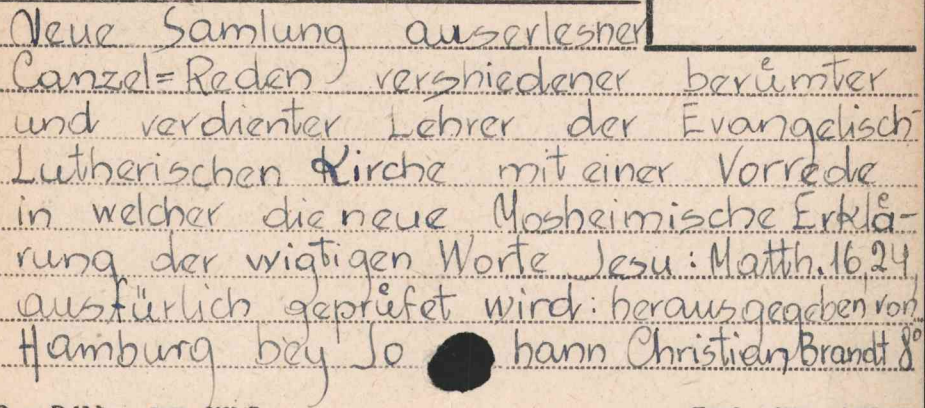 Neue Samlung auserlesner
Canzel=Reden vershiedener berůmter
und verdienter Lehrer der Evangelisch-
Lutherischen Kirche mit einer Vorrede
in welcher die neue Mosheimische Erklå-
rung der wigtigen Worte Jesu: Matth. 16,24,
ausfürlich geprůfet wird: herausgegeben von
Hamburg bey Jo hann Christian Brandt 8°